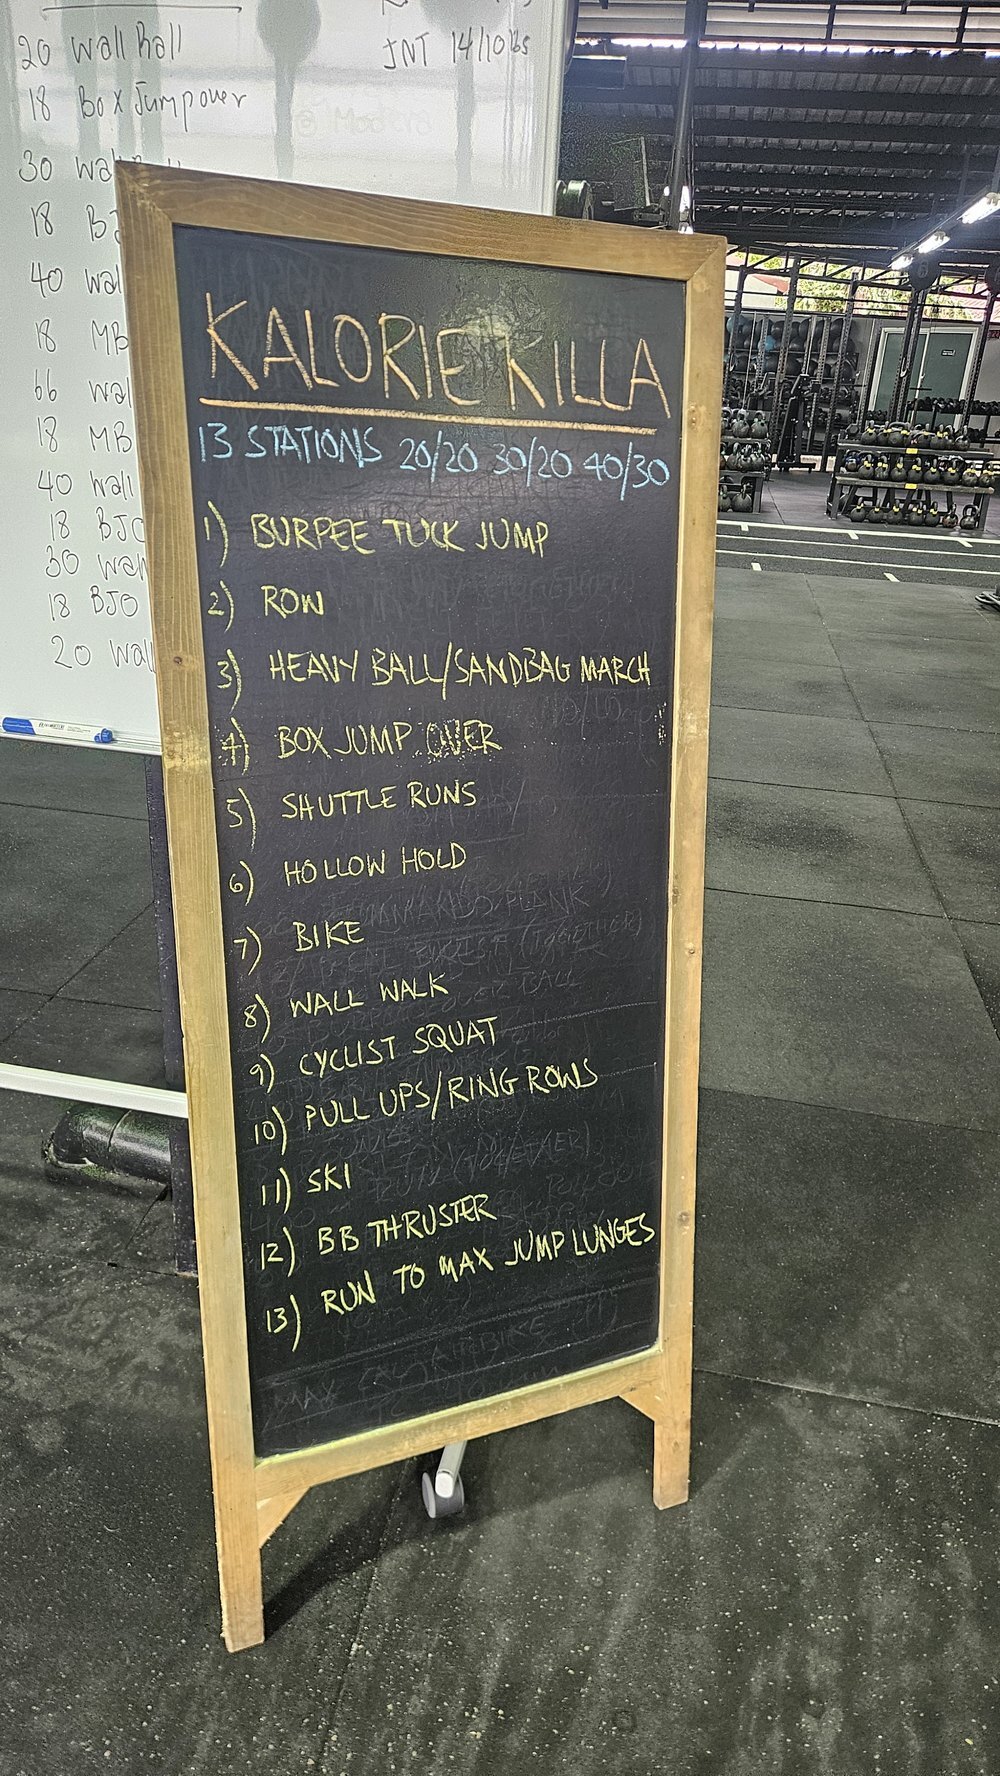 20 Wall Ball
JNT 14/10 lbs
18 Box Jump over
30
18
40
18 MB
66
18 MB
40 Wall
18 BJO
30
18 BJO
20
KALORIE KILLA
13 STATIONS 20/20 30/20 40/30
1) BURPEE TUCK JUMP
2) ROW
3) HEAVY BALL/SANDBAG MARCH
4) BOX JUMP OVER
5) SHUTTLE RUNS
6) HOLLOW HOLD
7) BIKE
8) WALL WALK
9) CYCLIST SQUAT
10) PULL UPS/RING ROWS
11) SKI
12) BB THRUSTER
13) RUN TO MAX JUMP LUNGES